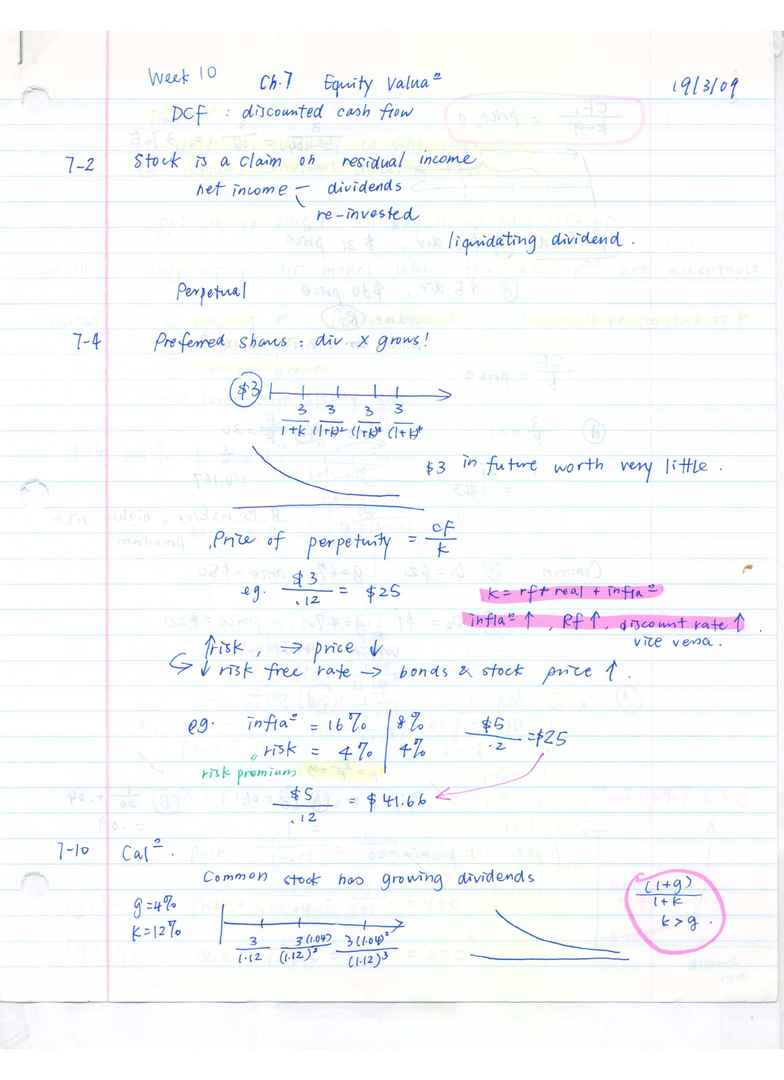 Week 10 Ch.7 Equity Valua² 19/3/09
DCF : discounted cash flow
7-2 Stock is a claim on residual income
net income — dividends
re-invested
liquidating dividend.
Perpetual
7-4 Preferred shares = div. X grows!
$3
3 3 3 3
1+k (1+k)² (1+k)³ (1+k)⁴
$3 in future worth very little.
Price of perpetuity = CF/k
eg. $3/.12 = $25
k = rf + real + infla²
infla² ↑, Rf ↑, discount rate ↑
vice versa.
↑risk, → price ↓
↓ risk free rate → bonds & stock price ↑.
eg. infla² = 16% | 8% $5/.2 = $25
" risk = 4% | 4%
risk premium
$5/.12 = $41.66
7-10 Cal².
Common stock has growing dividends
g=4%
k=12%
3/1.12 3(1.04)/(1.12)² 3(1.04)²/(1.12)³
(1+g)/1+k
k>g.